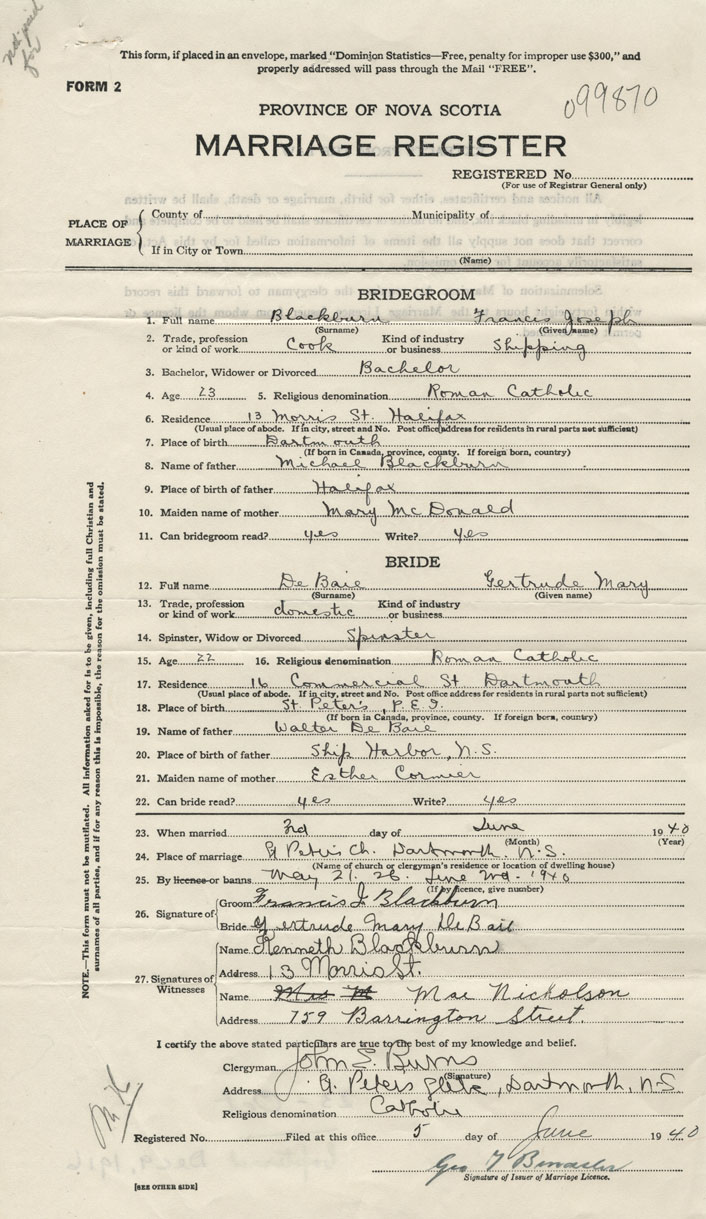 not paid
for
This form, if placed in an envelope, marked "Dominion Statistics—Free, penalty for improper use $300," and
properly addressed will pass through the Mail "FREE".
FORM 2
099870
PROVINCE OF NOVA SCOTIA
MARRIAGE REGISTER
REGISTERED No.
(For use of Registrar General only)
PLACE OF MARRIAGE
County of Municipality of
If in City or Town
(Name)
BRIDEGROOM
1. Full name Blackburn Francis Joseph
(Surname) (Given name)
2. Trade, profession or kind of work Cook Kind of industry or business Shipping
3. Bachelor, Widower or Divorced Bachelor
4. Age 23 5. Religious denomination Roman Catholic
6. Residence 13 Morris St. Halifax
(Usual place of abode. If in city, street and No. Post office address for residents in rural parts not sufficient)
7. Place of birth Dartmouth
(If born in Canada, province, county. If foreign born, country)
8. Name of father Michael Blackburn
9. Place of birth of father Halifax
10. Maiden name of mother Mary McDonald
11. Can bridegroom read? yes Write? yes
BRIDE
12. Full name De Baie Gertrude Mary
(Surname) (Given name)
13. Trade, profession or kind of work domestic Kind of industry or business
14. Spinster, Widow or Divorced Spinster
15. Age 22 16. Religious denomination Roman Catholic
17. Residence 16 Commercial St Dartmouth
(Usual place of abode. If in city, street and No. Post office address for residents in rural parts not sufficient)
18. Place of birth St. Peter's, P.E.I.
(If born in Canada, province, county. If foreign born, country)
19. Name of father Walter De Baie
20. Place of birth of father Ship Harbor, N.S.
21. Maiden name of mother Esther Cormier
22. Can bride read? yes Write? yes
23. When married 3rd day of June 1940
(Month) (Year)
24. Place of marriage St Peter's Ch. Dartmouth. N.S.
(Name of church or clergyman's residence or location of dwelling house)
25. By licence or banns May 21. 26. June 2nd. 1940
(If by licence, give number)
26. Signature of
Groom Francis J. Blackburn
Bride Gertrude Mary DeBaie
27. Signatures of Witnesses
Name Kenneth Blackburn
Address 13 Morris St.
Name Mrs M Mae Nicholson
Address 759 Barrington Street.
I certify the above stated particulars are true to the best of my knowledge and belief.
Clergyman John E. Burns
(Signature)
Address St. Peters Glebe, Dartmouth, N.S
Religious denomination Catholic
Registered No. Filed at this office 5 day of June 1940
Signature of Issuer of Marriage Licence.
[SEE OTHER SIDE]
NOTE.—This form must not be mutilated. All information asked for is to be given, including full Christian and
surnames of all parties, and if for any reason this is impossible, the reason for the omission must be stated.